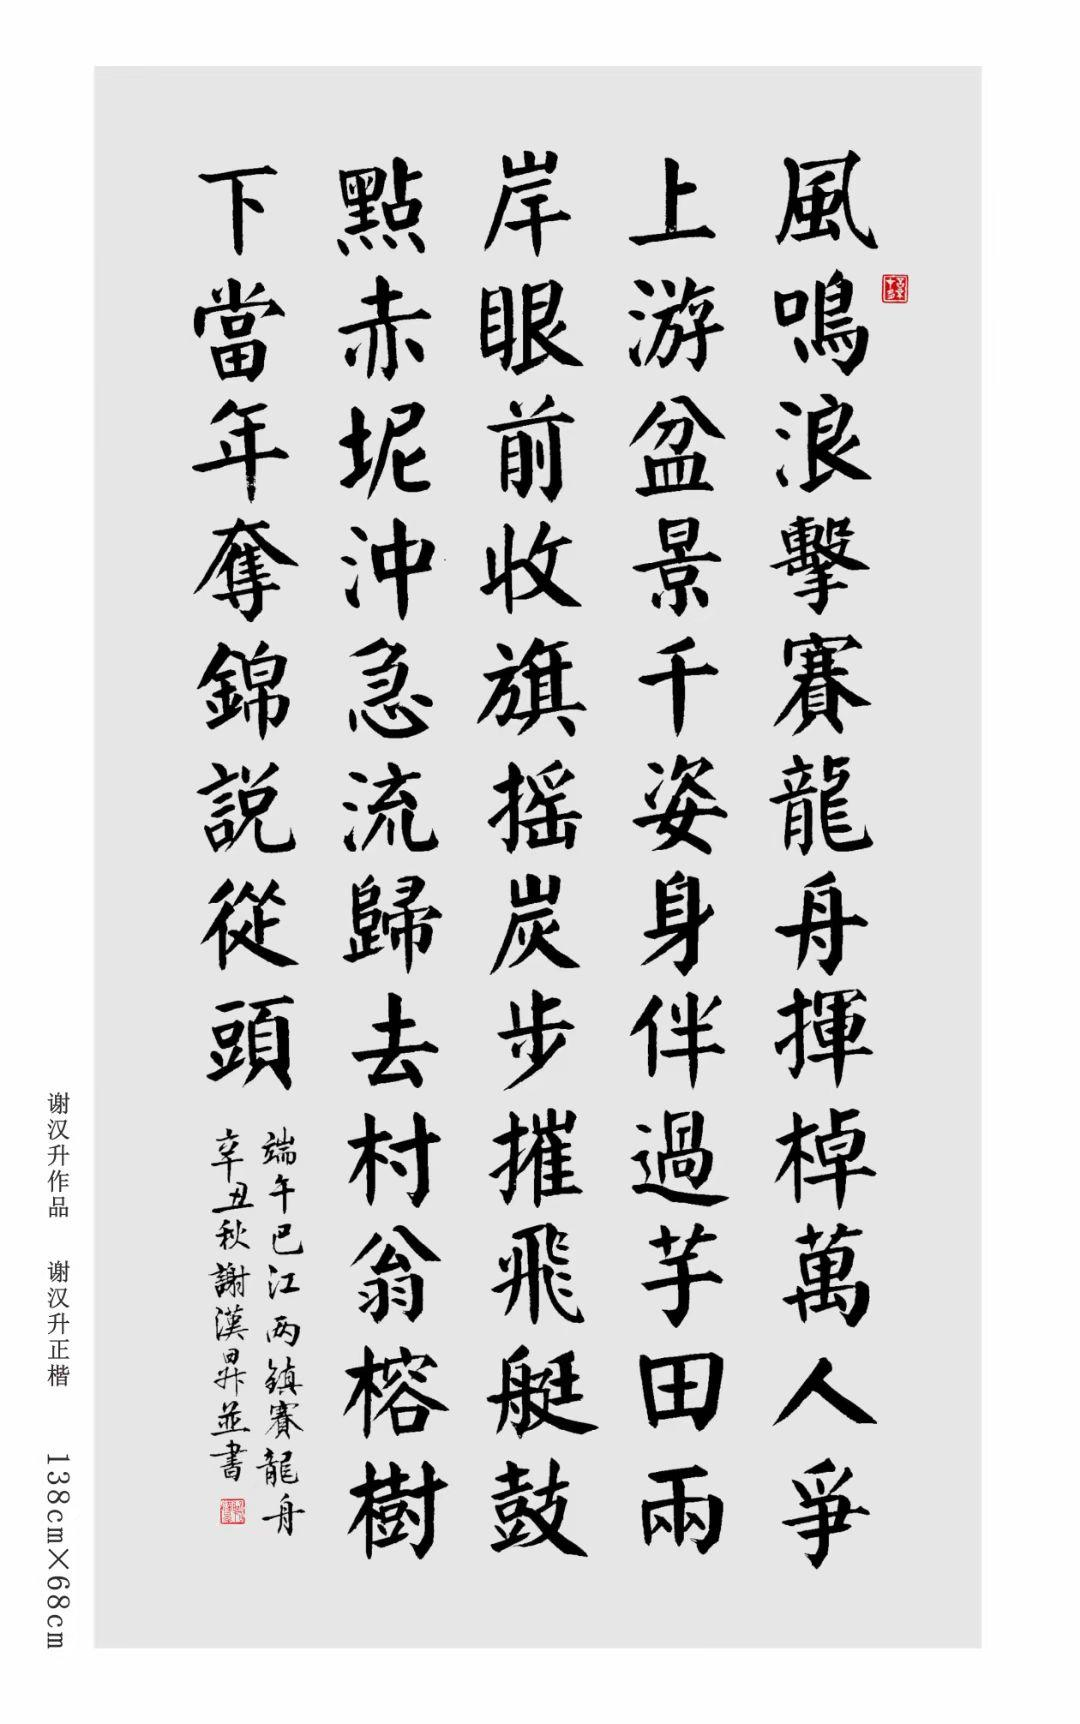 風鳴浪擊賽龍舟揮棹萬人爭
上游盆景千姿身伴過芋田兩
岸眼前收旗摇炭步摧飛艇鼓
點赤坭沖急流歸去村翁榕樹
下當年奪錦説從頭
端午巴江两鎮賽龍舟
辛丑秋謝漢昇並書
谢汉升作品 谢汉升正楷 138cm×68cm